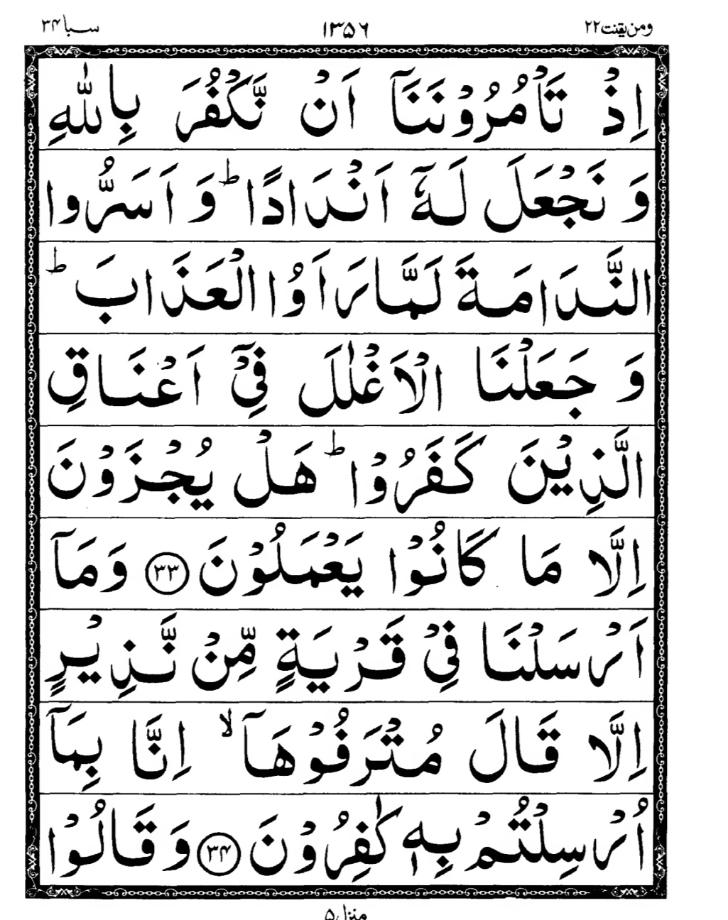 ومن یقنت ۲۲ ۱۳۵۶ سبا ۳۴
اِذْ تَاْمُرُوْنَنَاۤ اَنْ نَّكْفُرَ بِاللّٰهِ
وَ نَجْعَلَ لَهٗۤ اَنْدَادًا ؕ وَ اَسَرُّوا
النَّدَامَةَ لَمَّا رَاَوُا الْعَذَابَ ؕ
وَ جَعَلْنَا الْاَغْلٰلَ فِیْۤ اَعْنَاقِ
الَّذِیْنَ كَفَرُوْا ؕ هَلْ یُجْزَوْنَ
اِلَّا مَا كَانُوْا یَعْمَلُوْنَ ۳۳ وَمَاۤ
اَرْسَلْنَا فِیْ قَرْیَةٍ مِّنْ نَّذِیْرٍ
اِلَّا قَالَ مُتْرَفُوْهَاۤ ۙ اِنَّا بِمَاۤ
اُرْسِلْتُمْ بِهٖ كٰفِرُوْنَ ۳۴ وَ قَالُوْا
منزل ۵